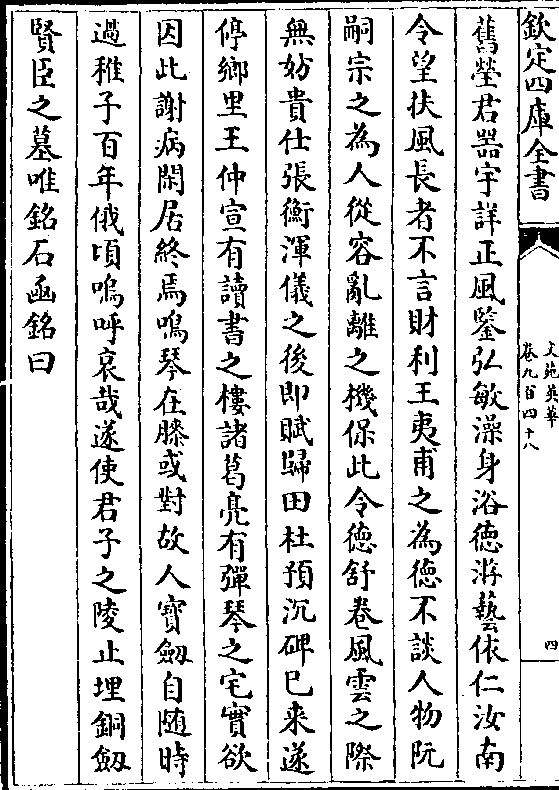 欽定四庫全書
文苑英華
卷九百四十八
四
舊塋君器宇詳正風鑒弘敏澡身浴德游藝依仁汝南
令望扶風長者不言財利王夷甫之為德不談人物阮
嗣宗之為人從容亂離之機保此令德舒卷風雲之際
無妨貴仕張衡渾儀之後即賦歸田杜預沉碑已来遂
停鄉里王仲宣有讀書之樓諸葛亮有彈琴之宅實欲
因此謝病閑居終焉鳴琴在膝或對故人寶劔自随時
過稚子百年俄頃嗚呼哀哉遂使君子之陵止埋銅劔
賢臣之墓唯銘石函銘曰